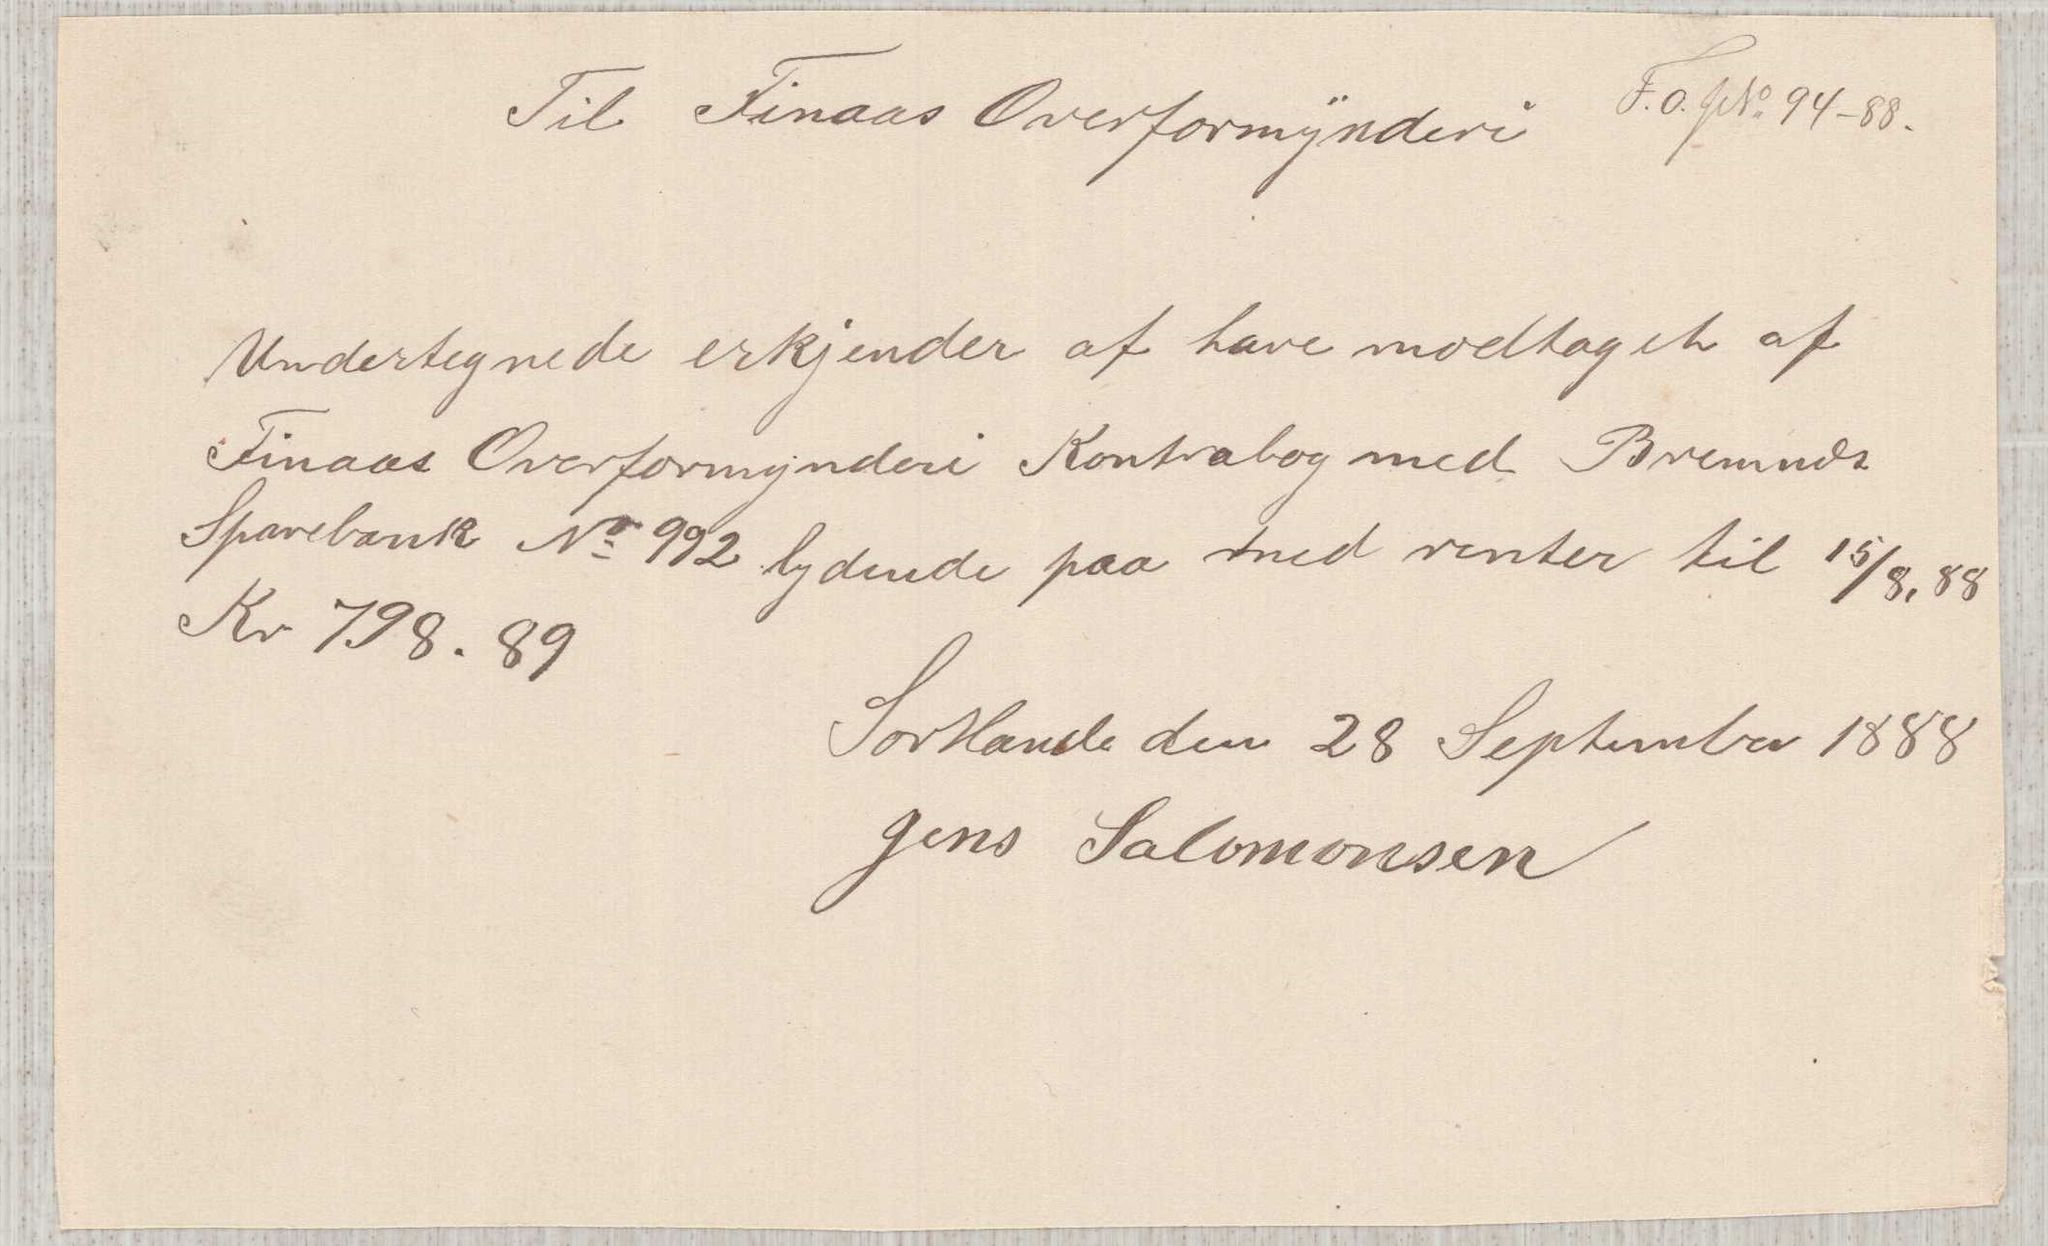 Til Finaas Overformÿnderi F.O. JNo. 94-88.
Undertegnede erkjender af have modtaget af
Finaas Overformynderi Kontrabog med Bremnds
Sparebank No 992 lydende paa med renter til 15/8.88
Kr 798.89
Sortlande den 28 September 1888
Jens Salomonsen